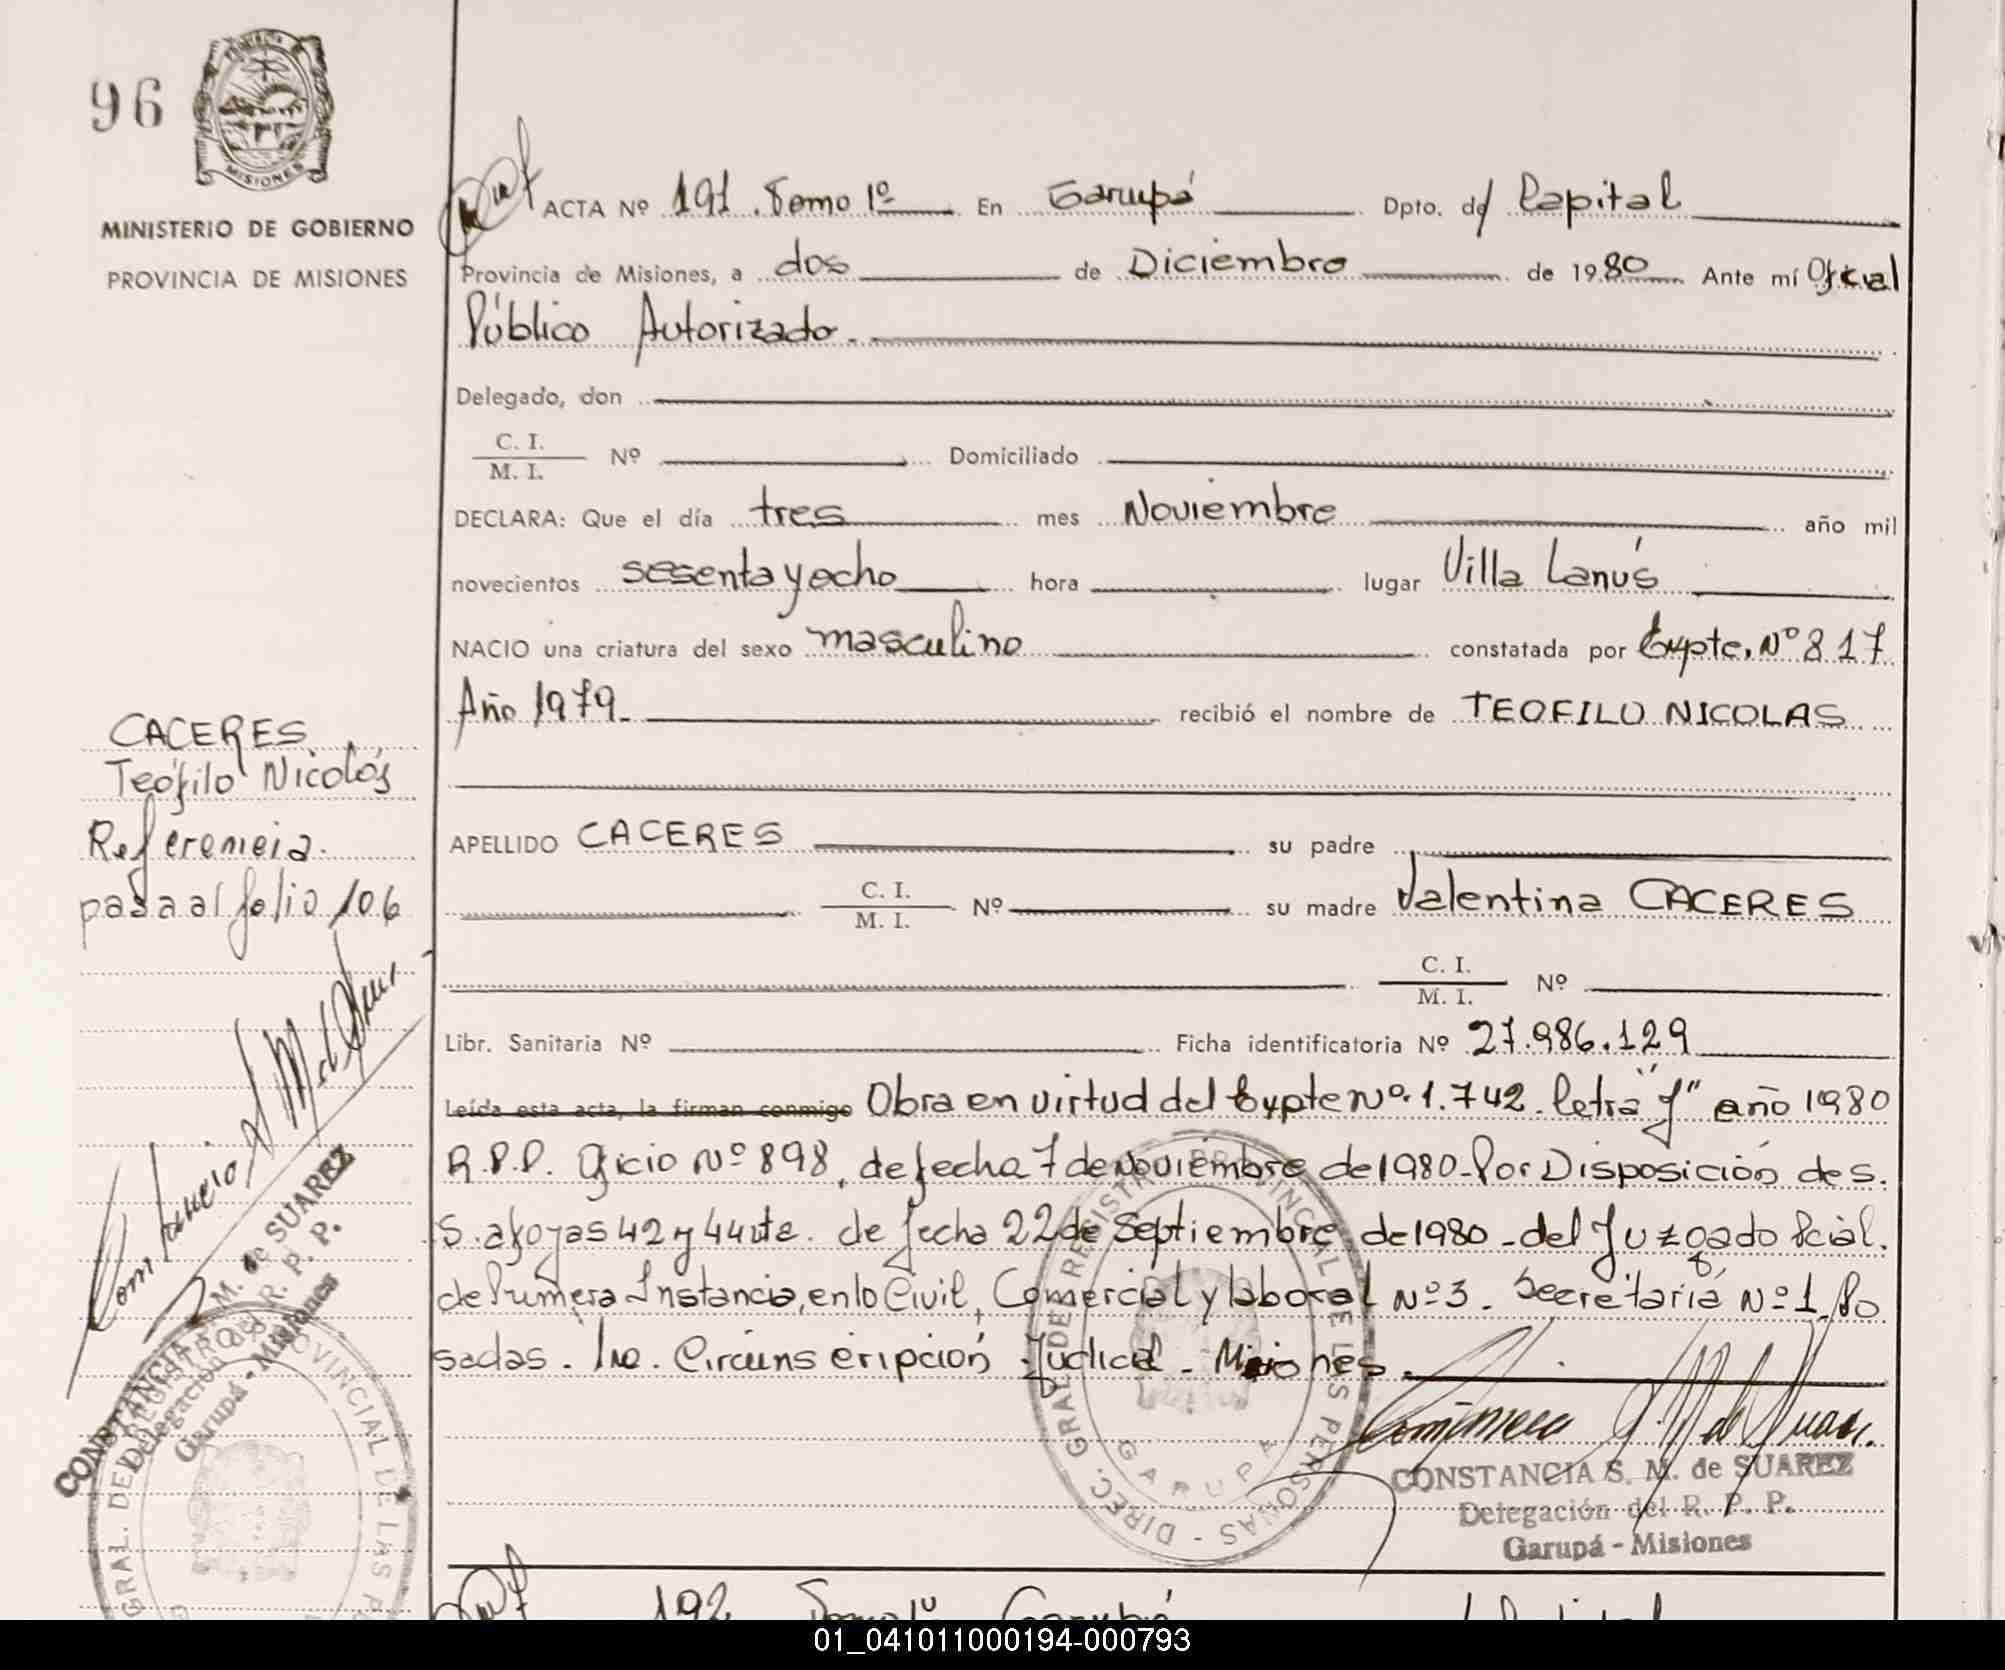 96
PROVINCIA DE
MISIONES
MINISTERIO DE GOBIERNO
PROVINCIA DE MISIONES
ACTA Nº 191. Tomo 1º En Garupá Dpto. de Capital
Provincia de Misiones, a dos de Diciembre de 1980 Ante mí Oficial
Público Autorizado.
Delegado, don
C. I.
M. I. Nº Domiciliado
DECLARA: Que el día tres mes Noviembre año mil
novecientos sesenta y ocho hora lugar Villa Lanús
NACIO una criatura del sexo masculino constatada por Expte. Nº 817
Año 1979. recibió el nombre de TEOFILO NICOLAS
APELLIDO CACERES su padre
C. I.
M. I. Nº su madre Valentina CACERES
C. I.
M. I. Nº
Libr. Sanitaria Nº Ficha identificatoria Nº 27.986.129
Leída esta acta, la firman conmigo Obra en virtud del Expte Nº 1.742. letra "J" año 1980
R.P.P. Oficio Nº 898, de fecha 7 de Noviembre de 1980 - Por Disposición de S.
S. a fojas 42 y 44 vta. de fecha 22 de Septiembre de 1980 - del Juzgado Pcial.
de Primera Instancia, en lo Civil, Comercial y laboral Nº 3. Secretaría Nº 1 Po
sadas. 1ra. Circunscripción Judicial - Misiones.
CONSTANCIA S. M. de SUAREZ
Delegación del R. P. P.
Garupá - Misiones
DIREC. GRAL. DE REGISTRO PROVINCIAL DE LAS PERSONAS -
GARUPA
CACERES
Teófilo Nicolás
Referencia.
pasa al folio 106
CONSTANCIA S. M. de SUAREZ
Delegación del R. P. P.
Garupá - Misiones
GRAL. DE REGISTRO PROVINCIAL DE LAS PE
192 Tomo 1º Garupá
01_041011000194-000793